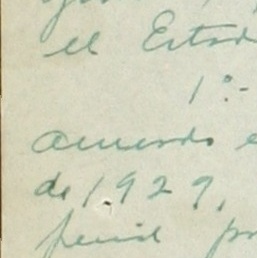 el Estad
1º.-
acuerdo e
de 1,929,
penil pr